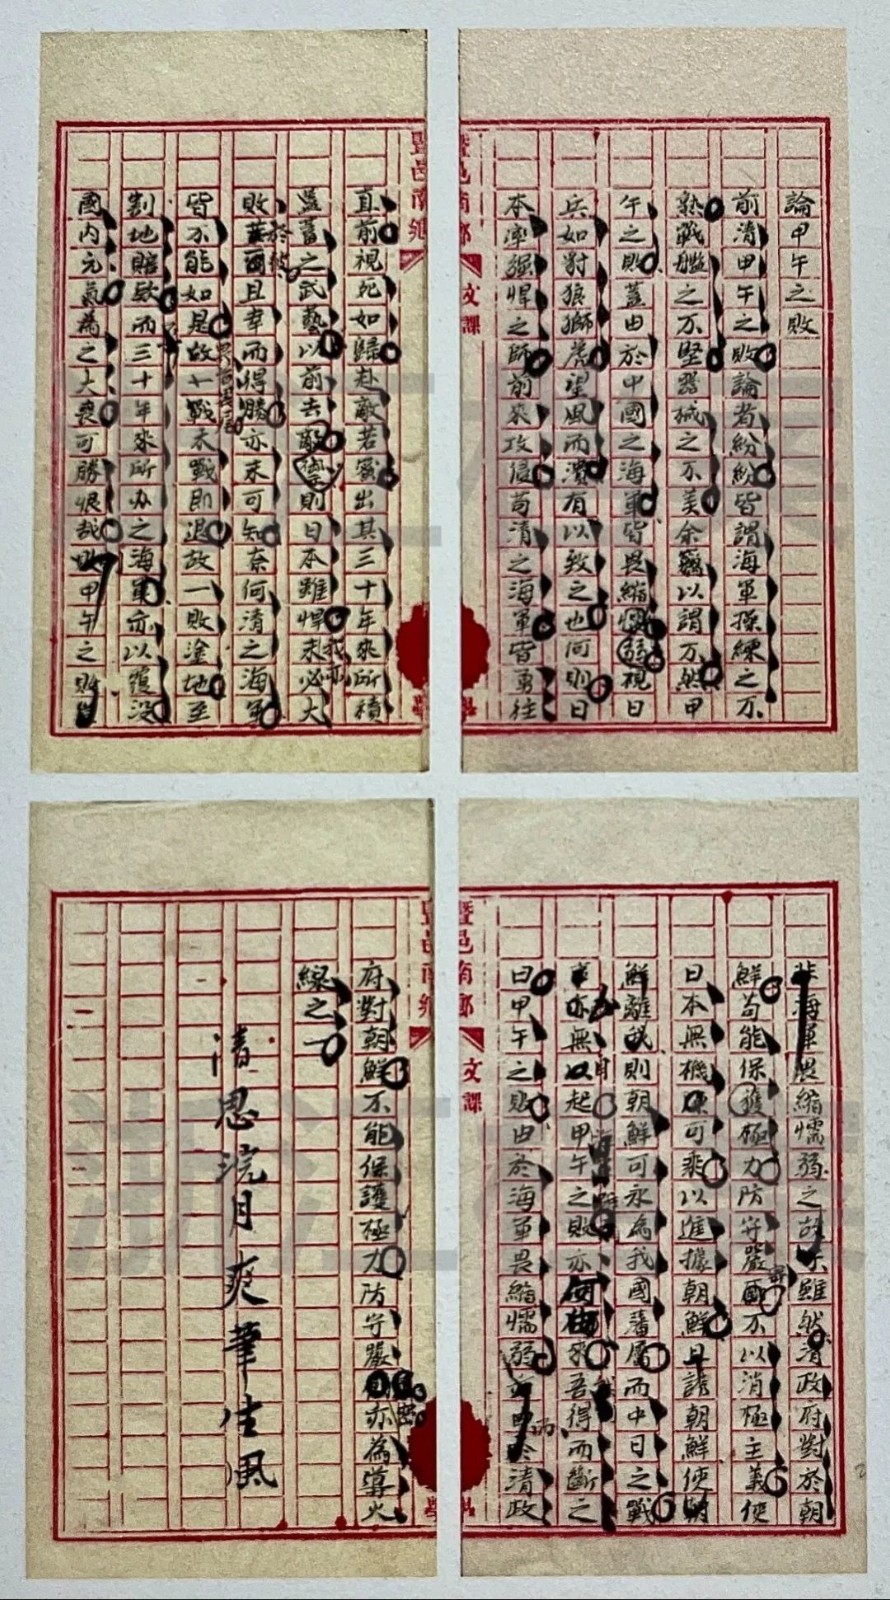 論甲午之敗
前清甲午之敗論者紛紛皆謂海軍操練之不
熟戰艦之不堅器械之不美余竊以謂不然甲
午之敗蓋由於中國之海軍皆畏縮懦弱視日
兵如對狼獅虎望風而潰有以致之也何則日
本率強悍之師前來攻侵苟清之海軍皆勇往
直前視死如歸赴敵若 出其三十年來所積
蓄之武藝以前去 則日本雖悍我亦未必大
敗於彼且幸而得勝亦未可知奈何清之海軍
皆不能如是故 戰未戰即退故一敗塗地至
割地賠款而三十年來所办之海軍亦以覆沒
國內元氣為之大喪可勝恨哉 甲午之敗
非海軍畏縮懦弱之故 雖然清政府對於朝
鮮苟能保護極力防守嚴密不以消極主義使
日本無機 可乘以進據朝鮮且誘朝鮮使朝
鮮離我則朝鮮可永為我國藩屬而中日之戰
亦無以起甲午之敗亦何由來吾得而斷之
曰甲午之敗由於海軍畏縮懦弱而 清政
府對朝鮮不能保護極力防守嚴密亦為導火
線之一
清思浣月爽筆生風
暨邑南鄉
文課
暨邑南鄉
文課